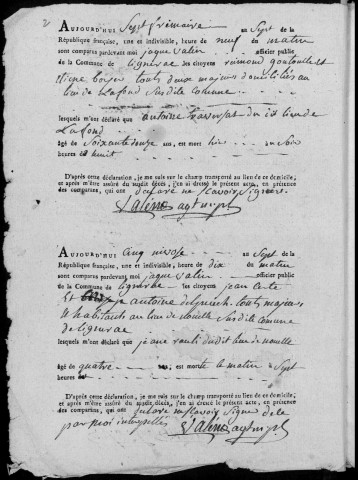 2
AUJOURD'HUI Sept frimaire an Sept de la
République française, une et indivisible, heure de neuf du matin
sont comparus pardevant moi jaque valin officier public
de la Commune de lignerac les citoyens rémond
pierre boyer touts deux majeurs domiciliés au
lieu de Lafond Susditte comune
lesquels m'ont déclaré que antoine du dit lieu de
Lafond
âgé de Soixante douze ans, est mort hier Soir
heures à huit
D'après cette déclaration, je me suis sur le champ transporté au lieu de ce domicile,
et après m'être assuré du susdit décès, j'en ai dressé le présent acte, en présence
des comparus, qui ont déclaré ne Scavoir Signer
Valin agt mpl
AUJOURD'HUI cinq nivose an Sept de la
République française, une et indivisible, heure de dix du matin
sont comparus pardevant moi jaque valin officier public
de la Commune de lignerac les citoyens jean
Et antoine delpeuch touts majeurs
Et habitants au lieu de Susditte comune
de ligneirac
lesquels m'ont déclaré que jeane du dit lieu de
âgé de quatre ans, est morte le matin Sept
heures
D'après cette déclaration, je me suis sur le champ transporté au lieu de ce domicile,
et après m'être assuré du susdit décès, j'en ai dressé le présent acte, en présence
des comparus, qui ont déclaré ne Scavoir Signer de ce
par moi interpellés Valin agt mpl